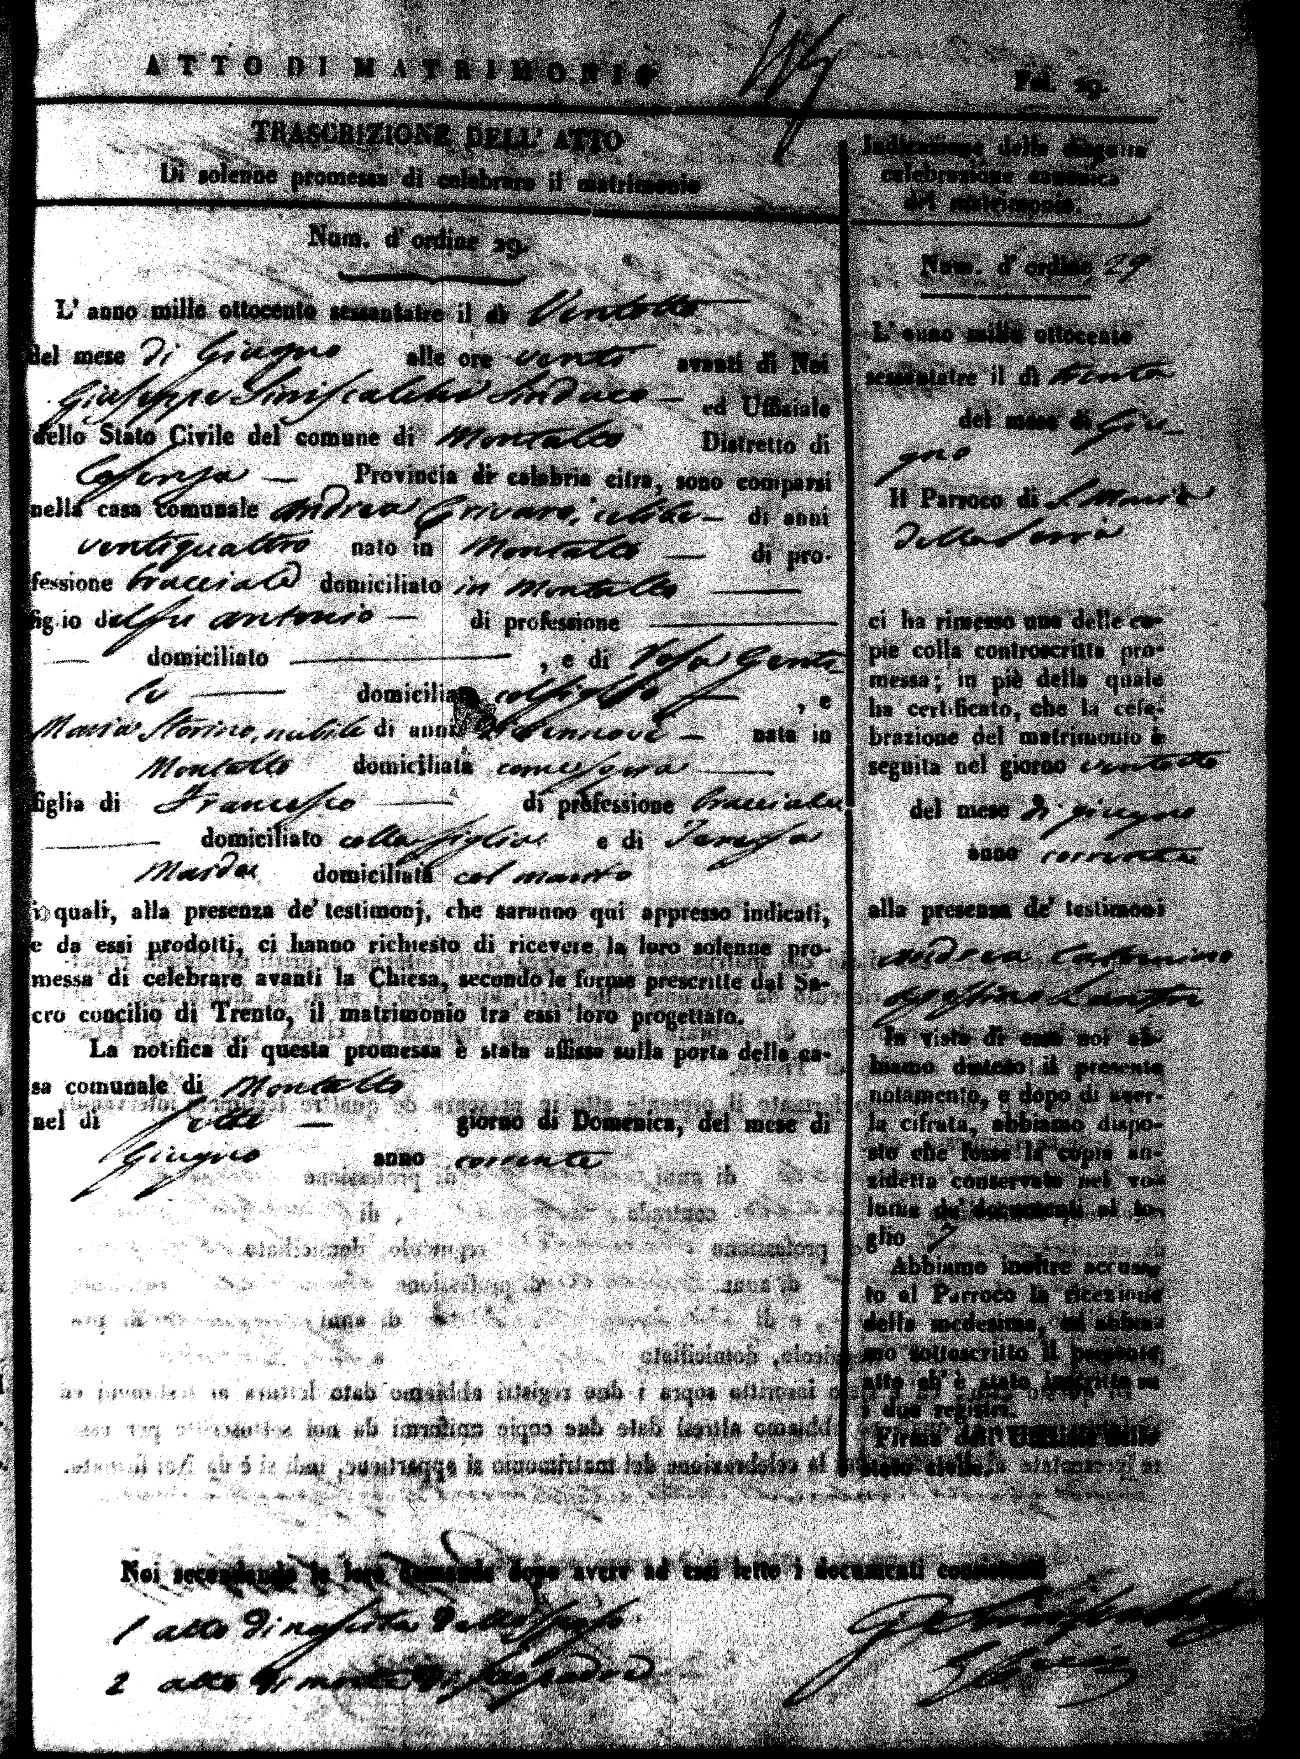 ATTO DI MATRIMONIO
Fol. 29.
TRASCRIZIONE DELL' ATTO
Di solenne promessa di celebrare il matrimonio
Num. d' ordine 29.
L' anno mille ottocento sessantatre il dì Ventotto
del mese di Giugno alle ore venti avanti di Noi
Giuseppe Siniscalchi Sindaco ed Uffiziale
dello Stato Civile del comune di Montalto Distretto di
Cosenza — Provincia di calabria citra, sono comparsi
nella casa comunale Andrea Grivaro, celibe — di anni
ventiquattro nato in Montalto — di pro-
fessione bracciale domiciliato in Montalto —
fig io del fu Antonio — di professione —
— domiciliato — , e di Rosa Genti
le — domiciliata col figlio — , e
Maria Storino, nubile di anni diecinnove — nata in
Montalto domiciliata come sopra —
figlia di Francesco — di professione bracciale
— domiciliato colla figlia e di Teresa
domiciliata col marito
i quali, alla presenza de' testimonj, che saranno qui appresso indicati,
e da essi prodotti, ci hanno richiesto di ricevere la loro solenne pro-
messa di celebrare avanti la Chiesa, secondo le forme prescritte dal Sa-
cro concilio di Trento, il matrimonio tra essi loro progettato.
La notifica di questa promessa è stata affissa sulla porta della ca-
sa comunale di Montalto
nel dì sette — giorno di Domenica, del mese di
Giugno anno corrente
Noi secondando la loro domanda dopo avere ad essi letto i documenti consistenti
1 atto di nascita dello sposo
2 atto di morte di suo padre
Indicazione della seguita
celebrazione canonica
del matrimonio.
Num. d' ordine 29
L' anno mille ottocento
sessantatre il dì trenta
del mese di Giu-
gno
Il Parroco di S. Maria
della Serra
ci ha rimesso una delle co-
pie colla controscritta pro-
messa; in piè della quale
ha certificato, che la cele-
brazione del matrimonio è
seguita nel giorno ventotto
del mese di giugno
anno corrente
alla presenza de' testimoni
Andrea
In vista di essa noi ab-
biamo disteso il presente
notamento, e dopo di aver-
la cifrata, abbiamo dispo-
sto che fosse la copia an-
zidetta conservata nel vo-
lume de' documenti al fo-
glio 7
Abbiamo inoltre accusa-
to al Parroco la ricezione
della medesima, ed abbia-
mo sottoscritto il presente
atto ch' è stato inscritto su
i due registri.
Firma dell' Uffiziale dello
Stato civile.